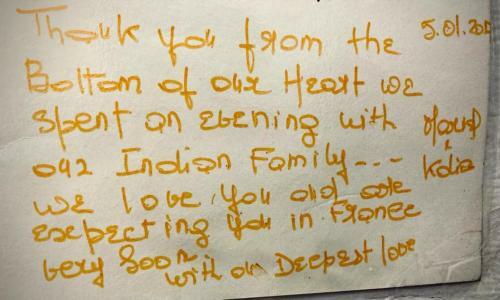 Thank you from the 5.01.20
Bottom of our Heart we
spent an evening with
our Indian Family...
we love you and are Kdia
expecting you in France
very soon
with our Deepest love